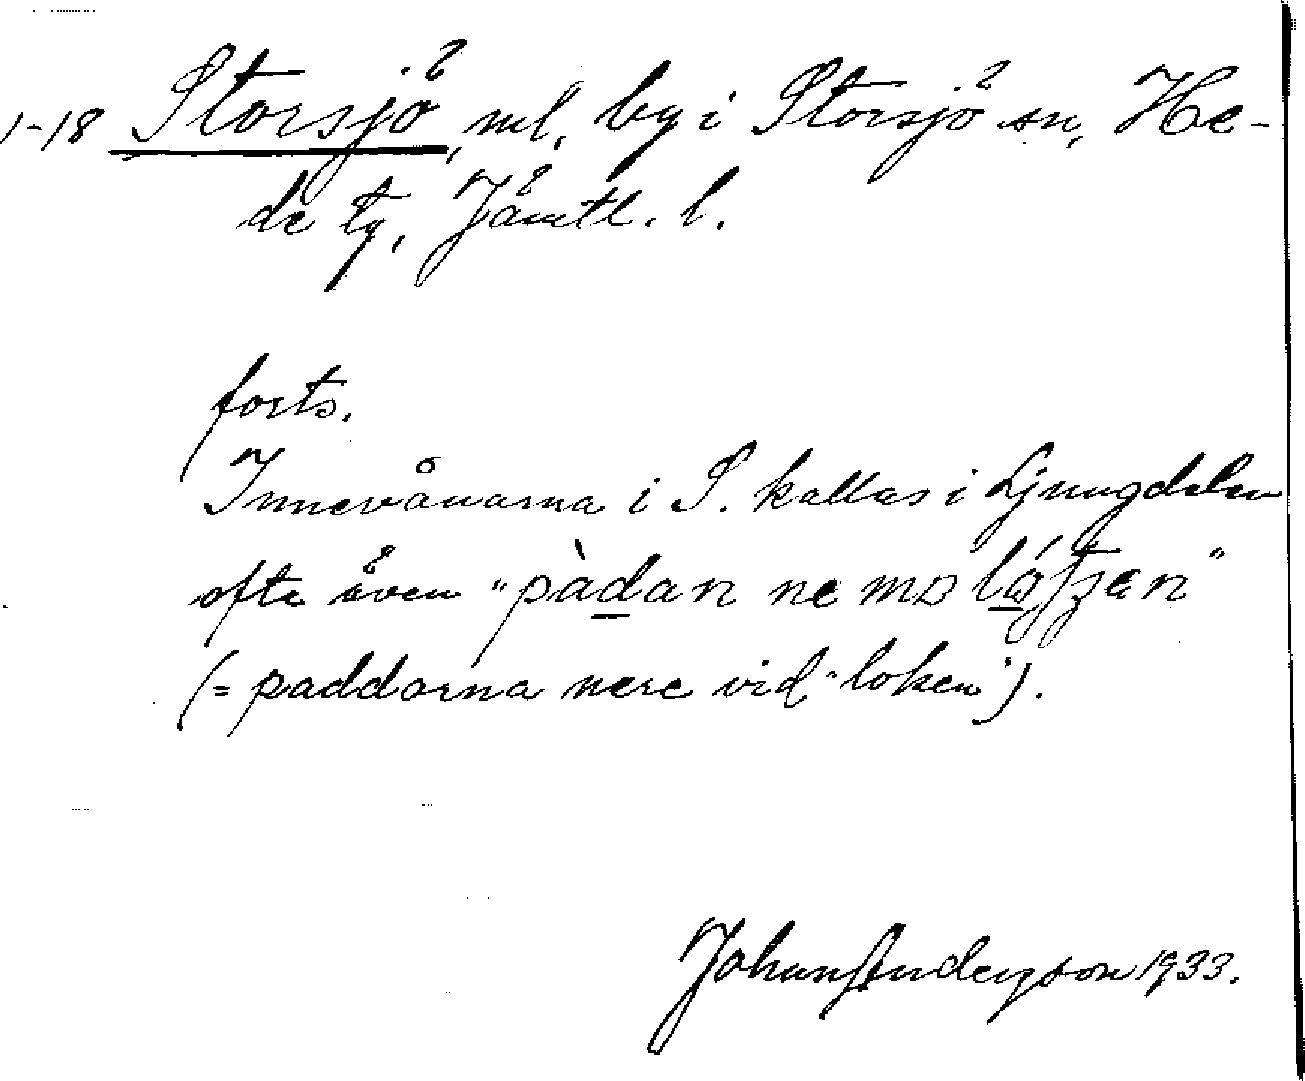 1-18 Storsjö, ml, by i Storsjö sn, He-
de tg, Jämtl. l.
forts.
Innevånarna i S. kallas i Ljungdalen
ofta även "pàdan ne
(= paddorna nere vid "loken").
Johan Anderson 1933.